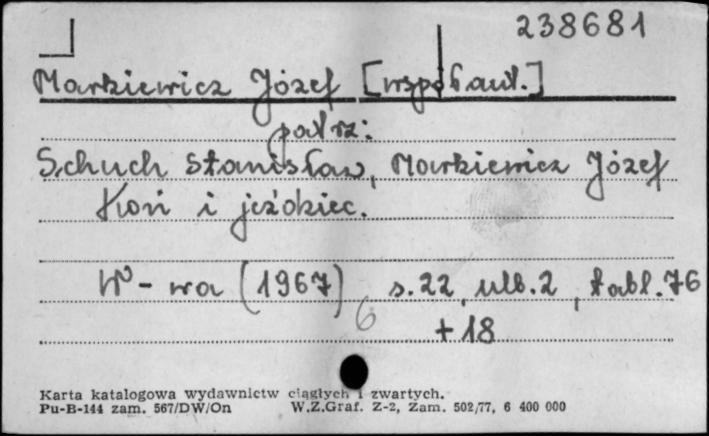 238681
Markiewicz Józef [współaut.]
patrz:
Schuch Stanisław, Markiewicz Józef
Koń i jeździec.
W-wa (1967) s. 22, ulb. 2, tabl. 76
6 + 18
Karta katalogowa wydawnictw ciągłych i zwartych.
Pu-B-144 zam. 567/DW/On W.Z.Graf. Z-2, Zam. 502/77, 6 400 000